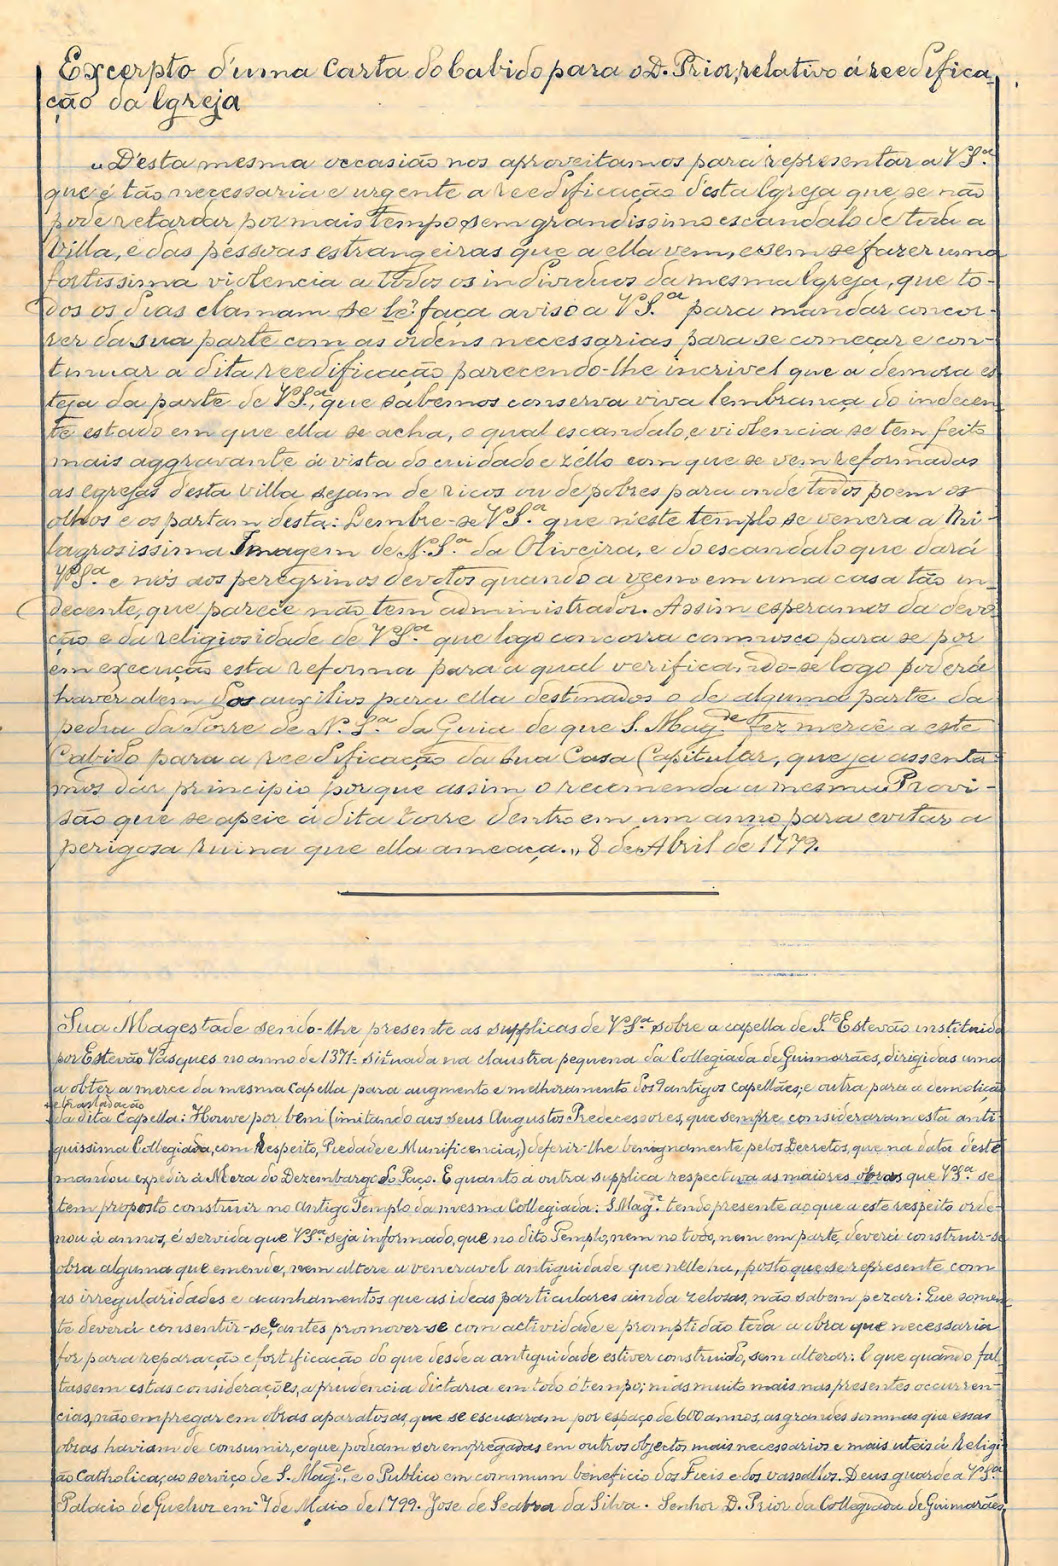 Excerpto d'uma Carta do Cabido para o D. Prior, relativo á reedifica-
ção da Igreja
"D'esta mesma occasião nos aproveitamos para representar a V. S.ª
que é tão necessaria e urgente a reedificação d'esta Igreja que se não
pode retardar por mais tempo, sem grandissimo escandalo de toda a
Villa, e das pessoas estrangeiras que a ella vem, e sem se fazer uma
fortissima violencia a todos os individuos da mesma Igreja, que to-
dos os dias clamam se lhe faça aviso a V. S.ª para mandar concor-
rer da sua parte com as ordens necessarias para se começar e con-
tinuar a dita reedificação parecendo-lhe incrivel que a demora es-
teja da parte de V. S.ª, que sabemos conserva viva lembrança do indecen-
te estado em que ella se acha, o qual escandalo, e violencia se tem feito
mais aggravante á vista do cuidado e zêllo com que se vem reformadas
as egrejas desta villa sejam de ricos ou de pobres para onde todos poem os
olhos e os partam desta: Lembre-se V. S.ª que n'este templo se venera a Mi-
lagrosissima Imagem de N. S.ª da Oliveira, e do escandalo que dará
V. S.ª e nós aos peregrinos devotos quando a vejem em uma casa tão in-
decente, que parece não tem administrador. Assim esperamos da devo-
ção e da religiosidade de V. S.ª que logo concorra comnosco para se por
em execução esta reforma para a qual verificando-se logo poderá
haver alem dos auxilios para ella destinados o de alguma parte da
pedra da Torre de N. S.ª da Guia de que S. Mag.de fez mercê a este
Cabido para a reedificação da sua Casa Capitular, que ja assenta-
mos dar principio porque assim o recomenda a mesma Provi-
são que se apeie á dita torre dentro em um anno para evitar a
perigosa ruina que ella ameaça." 8 de Abril de 1779.
Sua Magestade sendo-lhe presente as supplicas de V. S.ª sobre a capella de S.to Estevão instituida
por Estevão Vasques no anno de 1371- situada na claustra pequena da Collegiada de Guimarães, dirigidas uma
a obter a merce da mesma Capella para augmento e melhoramento dos 9 antigos capellães; e outra para a demolição
e trasladação
da dita Capella: Houve por bem (imitando aos seus Augustos Predecessores, que sempre consideraram esta anti-
quissima Collegiada, com Respeito, Piedade e Munificencia,) deferir-lhe benignamente pelos Decretos, que na data d'este
mandou expedir á Meza do Dezembargo do Paço. E quanto a outra supplica respectiva as maiores obras que V. S.ª se
tem proposto construir no Antigo Templo da mesma Collegiada: S. Mag.de tendo presente ao que a este respeito orde-
nou á annos, é servida que V. S.ª seja informado, que no dito Templo, nem no todo, nem em parte, deverá construir-se
obra alguma que emende, nem altere a veneravel antiguidade que nelle ha, posto que se represente com
as irregularidades e acanhamentos que as ideas particulares ainda zelosas, não sabem pezar: Que somen-
te deverá consentir-se, e antes promover-se com actividade e promptidão toda a obra que necessaria
for para reparação e fortificação do que desde a antiguidade estiver construido, sem alterar: E que quando fal-
tassem estas considerações, a prudencia dictaria em todo o tempo; mas muito mais nas presentes occurren-
cias, não empregar em obras aparatosas, que se escusaram por espaço de 600 annos, as grandes sommas que essas
obras haviam de consumir, e que podiam ser empregadas em outros objectos mais necessarios e mais uteis á Religi-
ão Catholica, ao serviço de S. Mag.de, e o Publico em commum beneficio dos Fieis e dos vassallos. Deus guarde a V. S.ª
Palacio de Queluz em 7 de Maio de 1799. Jose de Seabra da Silva. Senhor D. Prior da Collegiada de Guimarães.